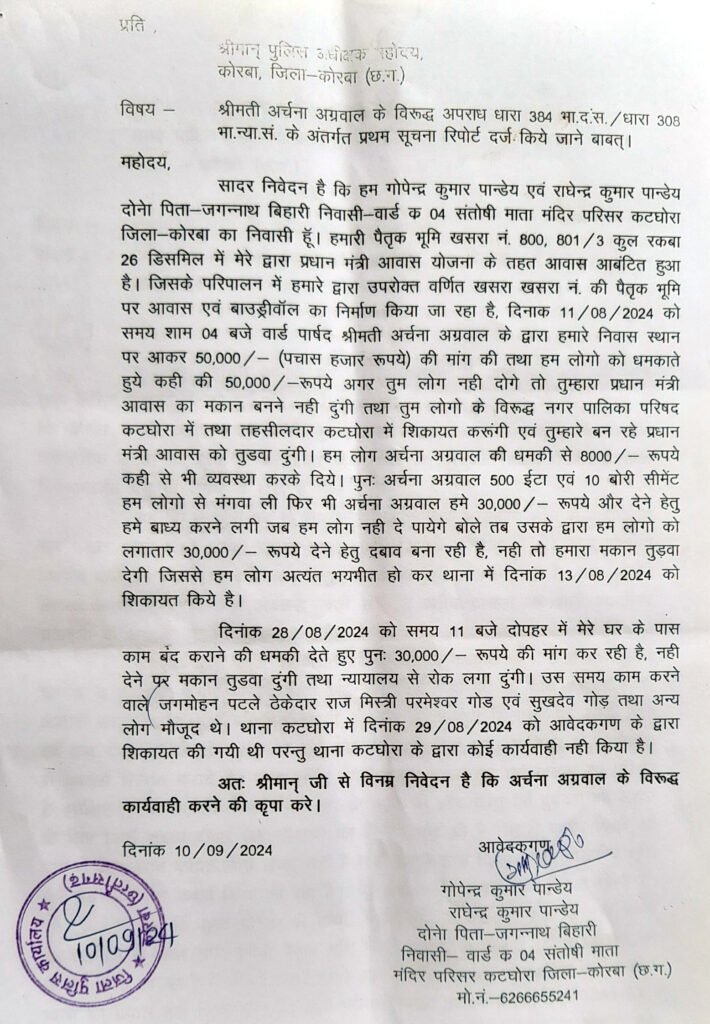 प्रति ,
श्रीमान् पुलिस अधीक्षक महोदय,
कोरबा, जिला–कोरबा (छ.ग.)
विषय – श्रीमती अर्चना अग्रवाल के विरूद्ध अपराध धारा 384 भा.द.स./धारा 308
भा.न्या.सं. के अंतर्गत प्रथम सूचना रिपोर्ट दर्ज किये जाने बाबत्।
महोदय,
सादर निवेदन है कि हम गोपेन्द्र कुमार पान्डेय एवं राघेन्द्र कुमार पान्डेय
दोनेा पिता–जगन्नाथ बिहारी निवासी–वार्ड क 04 संतोषी माता मंदिर परिसर कटघोरा
जिला–कोरबा का निवासी हूँ। हमारी पैतृक भूमि खसरा नं. 800, 801/3 कुल रकबा
26 डिसमिल में मेरे द्वारा प्रधान मंत्री आवास योजना के तहत आवास आबंटित हुआ
है। जिसके परिपालन में हमारे द्वारा उपरोक्त वर्णित खसरा खसरा नं. की पैतृक भूमि
पर आवास एवं बाउड्रीवॉल का निर्माण किया जा रहा है, दिनाक 11/08/2024 को
समय शाम 04 बजे वार्ड पार्षद श्रीमती अर्चना अग्रवाल के द्वारा हमारे निवास स्थान
पर आकर 50,000/– (पचास हजार रूपये) की मांग की तथा हम लोगो को धमकाते
हुये कही की 50,000/–रूपये अगर तुम लोग नही दोगे तो तुम्हारा प्रधान मंत्री
आवास का मकान बनने नही दुंगी तथा तुम लोगो के विरूद्ध नगर पालिका परिषद
कटघोरा में तथा तहसीलदार कटघोरा में शिकायत करूंगी एवं तुम्हारे बन रहे प्रधान
मंत्री आवास को तुडवा दुंगी। हम लोग अर्चना अग्रवाल की धमकी से 8000/– रूपये
कही से भी व्यवस्था करके दिये। पुनः अर्चना अग्रवाल 500 ईटा एवं 10 बोरी सीमेंट
हम लोगो से मंगवा ली फिर भी अर्चना अग्रवाल हमे 30,000/– रूपये और देने हेतु
हमे बाध्य करने लगी जब हम लोग नही दे पायेगे बोले तब उसके द्वारा हम लोगो को
लगातार 30,000/– रूपये देने हेतु दबाव बना रही है, नही तो हमारा मकान तुड़वा
देगी जिससे हम लोग अत्यंत भयभीत हो कर थाना में दिनांक 13/08/2024 को
शिकायत किये है।
दिनांक 28/08/2024 को समय 11 बजे दोपहर में मेरे घर के पास
काम बंद कराने की धमकी देते हुए पुनः 30,000/– रूपये की मांग कर रही है, नही
देने पर मकान तुडवा दुंगी तथा न्यायालय से रोक लगा दुंगी। उस समय काम करने
वाले जगमोहन पटले ठेकेदार राज मिस्त्री परमेश्वर गोड एवं सुखदेव गोड़ तथा अन्य
लोग मौजूद थे। थाना कटघोरा में दिनांक 29/08/2024 को आवेदकगण के द्वारा
शिकायत की गयी थी परन्तु थाना कटघोरा के द्वारा कोई कार्यवाही नही किया है।
अतः श्रीमान् जी से विनम्र निवेदन है कि अर्चना अग्रवाल के विरूद्ध
कार्यवाही करने की कृपा करे।
दिनांक 10/09/2024
आवेदकगण
गोपेन्द्र कुमार पान्डेय
राघेन्द्र कुमार पान्डेय
दोनेा पिता–जगन्नाथ बिहारी
निवासी– वार्ड क 04 संतोषी माता
मंदिर परिसर कटघोरा जिला–कोरबा (छ.ग.)
मो.नं.–6266655241
जिला पुलिस कार्यालय
(छत्तीसगढ़)
10/09/24